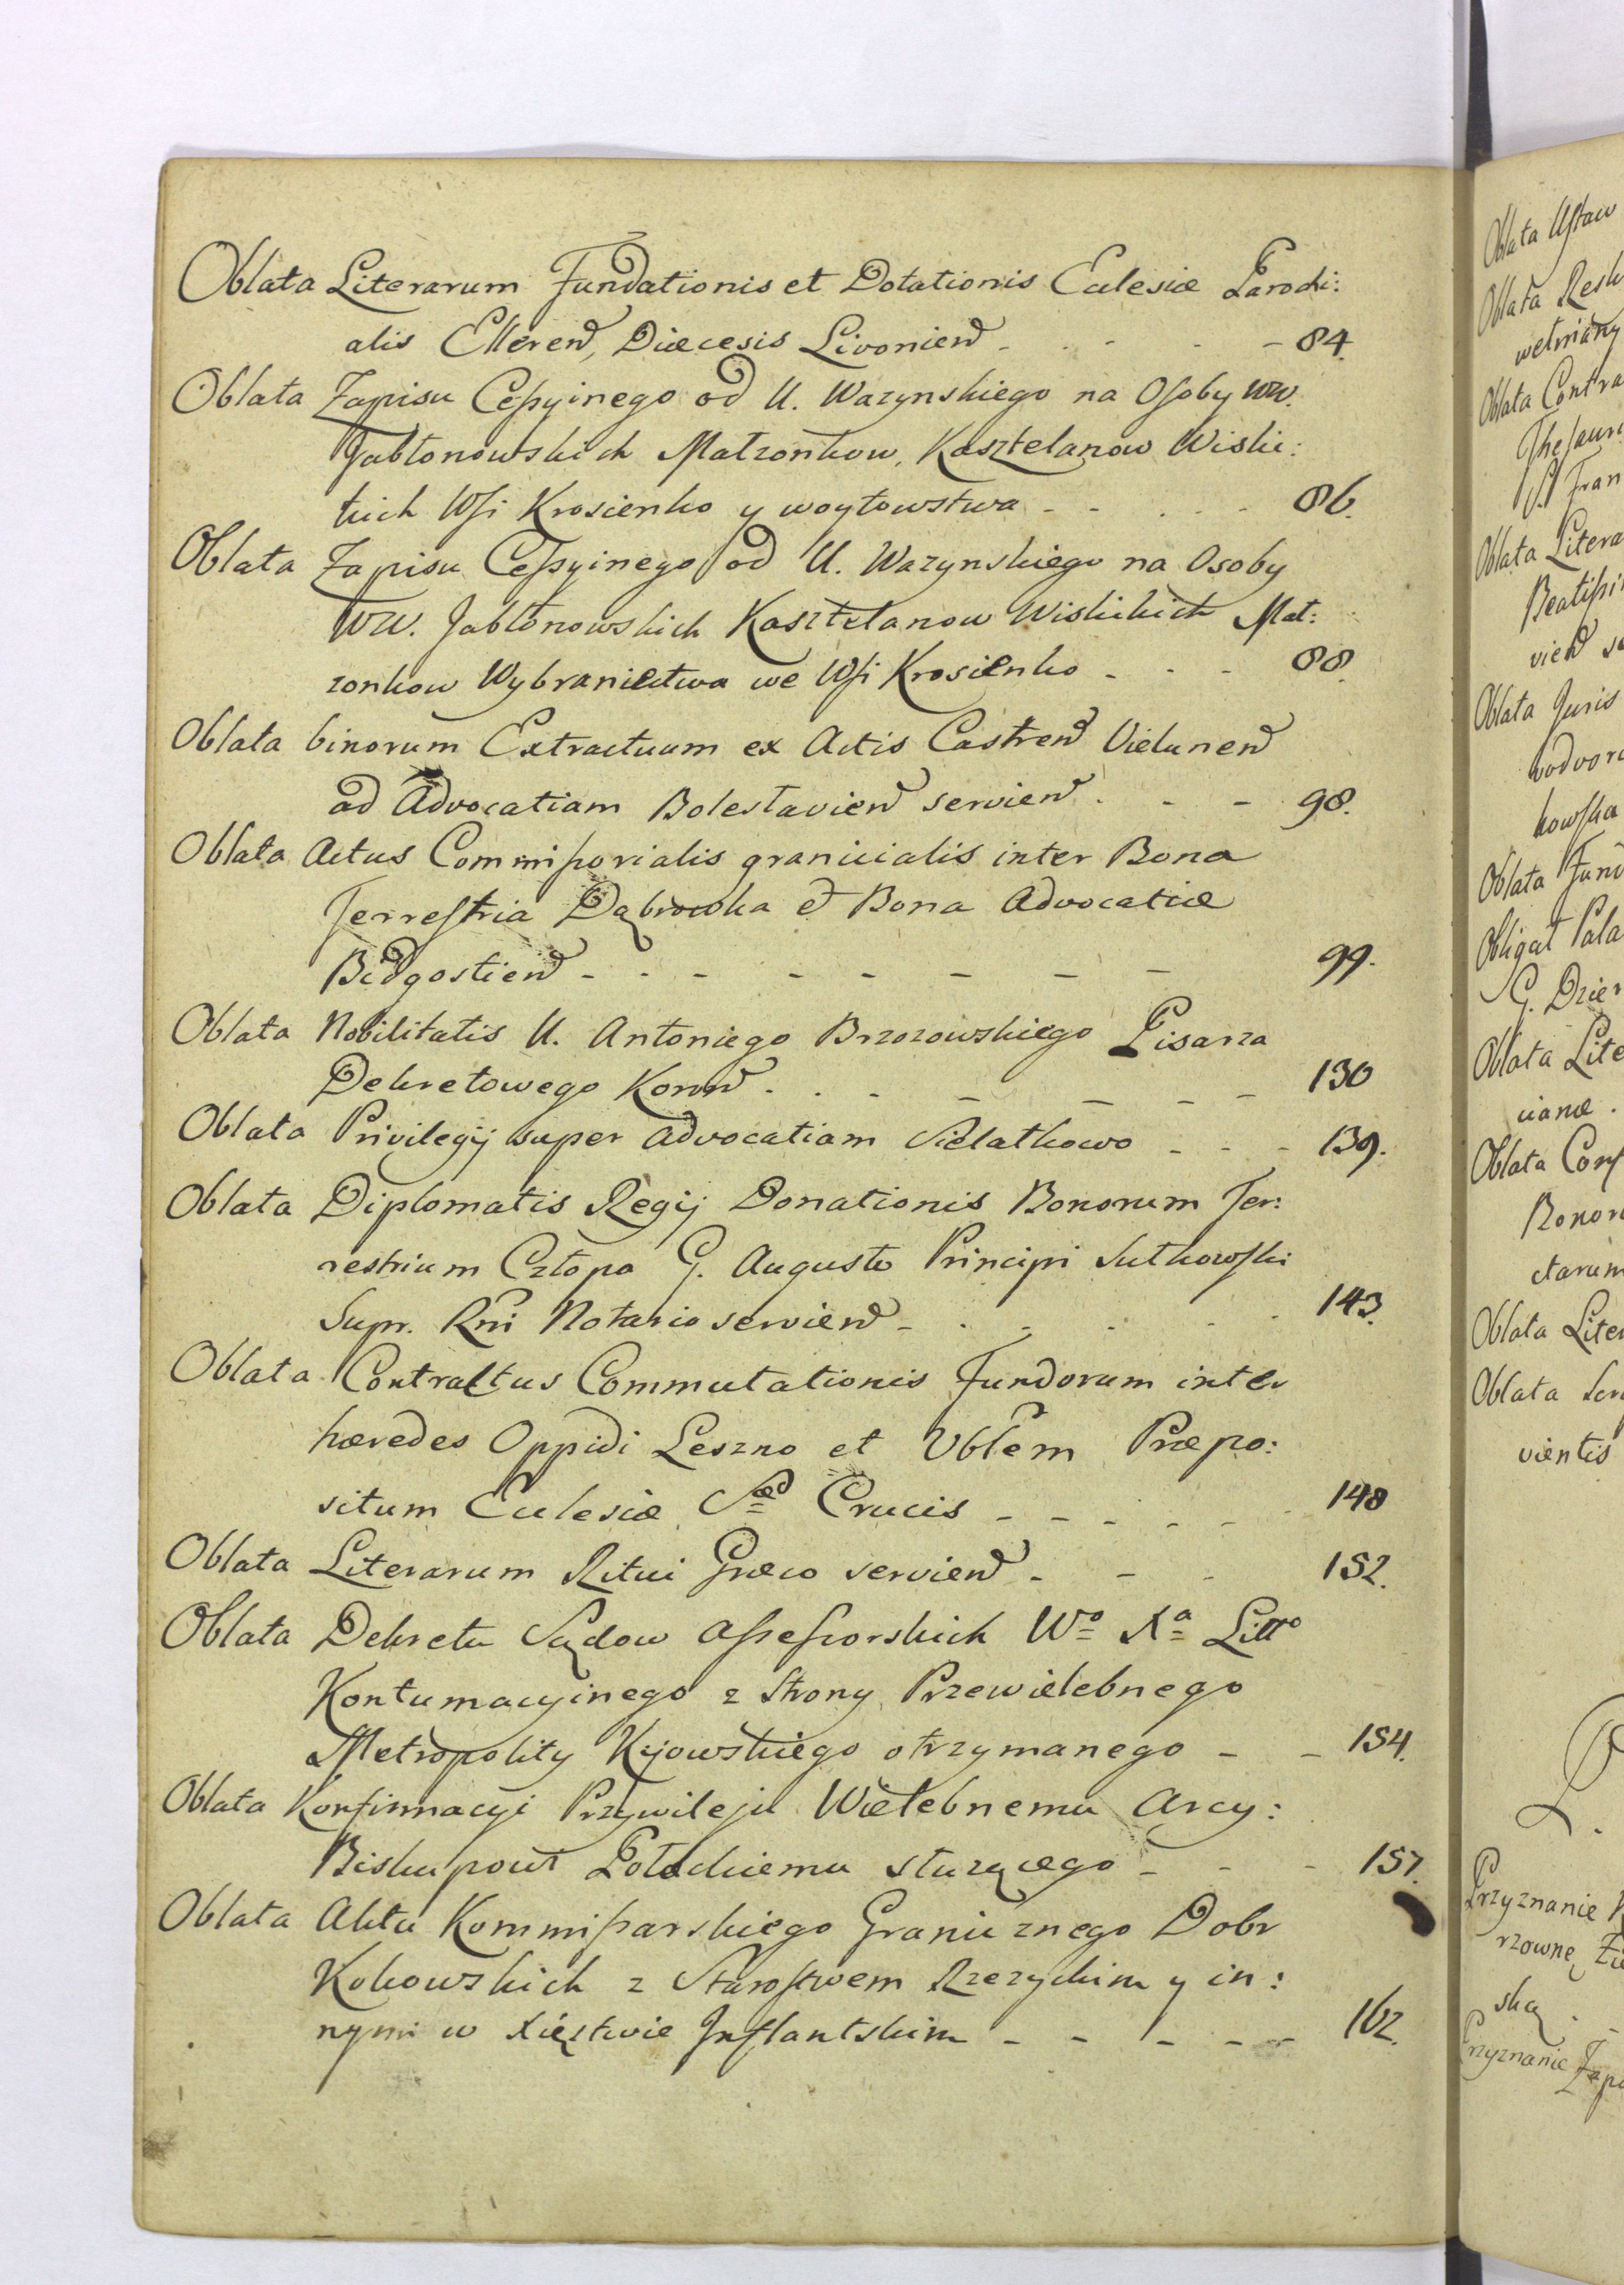 Oblata Literarum Fundationis et Dotationis Eclesiæ Parochi:
alis Elleren͠, Diæcesis Livonien͠ - - - - - 84.
Oblata Zapisu Cessyinego od U. Wazynskiego na Osoby WW.
Jabłonowskich Małzonkow, Kasztelanow Wislic:
kich Wsi Krosienko y woytowstwa - - - - - 86.
Oblata Zapisu Cessyinego od U. Wazynskiego na Osoby
WW. Jabłonowskich Kasztelanow Wislickich Mał:
zonkow Wybraniectwa we Wsi Krosienko - - - 88.
Oblata binorum Extractuum ex Actis Castren͠ Vielunen͠
ad Advocatiam Boleslavien͠ servien͠ - - - 98.
Oblata Actus Commissorialis granicialis inter Bona
Terrestria Dąbrowka et Bona Advocatiæ
Bidgostien͠ - - - - - - - - 99.
Oblata Nobilitatis U. Antoniego Brzozowskiego Pisarza
Dekretowego Koron͠ - - - - - - - 130
Oblata Privilegij super advocatiam Sielatkowo - - - 139.
Oblata Diplomatis Regij Donationis Bonorum Ter:
restrium Człopa G. Augusto Principi Sułkowski
Supr. Rni Notario servien͠ - - - - - - 143.
Oblata Contractus Commutationis Fundorum inter
hæredes Oppidi Leszno et Vblem Præpo:
situm Eclesiæ Sæ Crucis - - - - - - 148
Oblata Literarum Ritui Græco servien͠ - - - 152.
Oblata Dekretu Sądow Assessorskich Wo Xa Litto
Kontumacyinego z Strony Przewielebnego
Metropolity Kijowskiego otrzymanego - - 154.
Oblata Konfirmacyi Przywileju Wielebnemu Arcy:
Biskupowi Połockiemu służącego - - - 157.
Oblata Aktu Kommissarskiego Granicznego Dobr
Kokowskich z Starostwem Rzezyckim y in:
nymi w Xięstwie Inflantskim - - - - - 162.
Oblata Ustaw
Oblata
wełniany
Oblata Contra
Thesauri
S. Fran
Oblata Litera
Beatissi
vien͠
Oblata Juris
kowska
Oblata Fund
Obligat Pala
G. Dzier
Oblata Lite
cianæ .
Oblata Conf
Bonoru
ctarum
Oblata Liter
Oblata
vientis
Przyznanie
rzowne
ską
Przyznanie Zapi